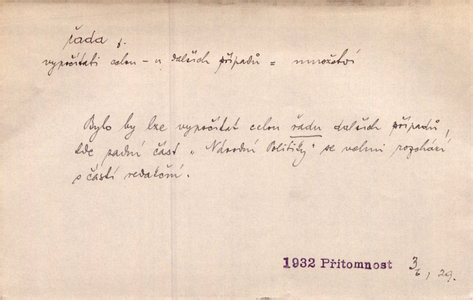 řada f.
vypočítati celou – u dalších případů = množství
Bylo by lze vypočítat celou řadu dalších případů,
kde zadní část „Národní Politiky" se velmi rozchází
s částí redakční.
1932 Přítomnost 3/6, 29.